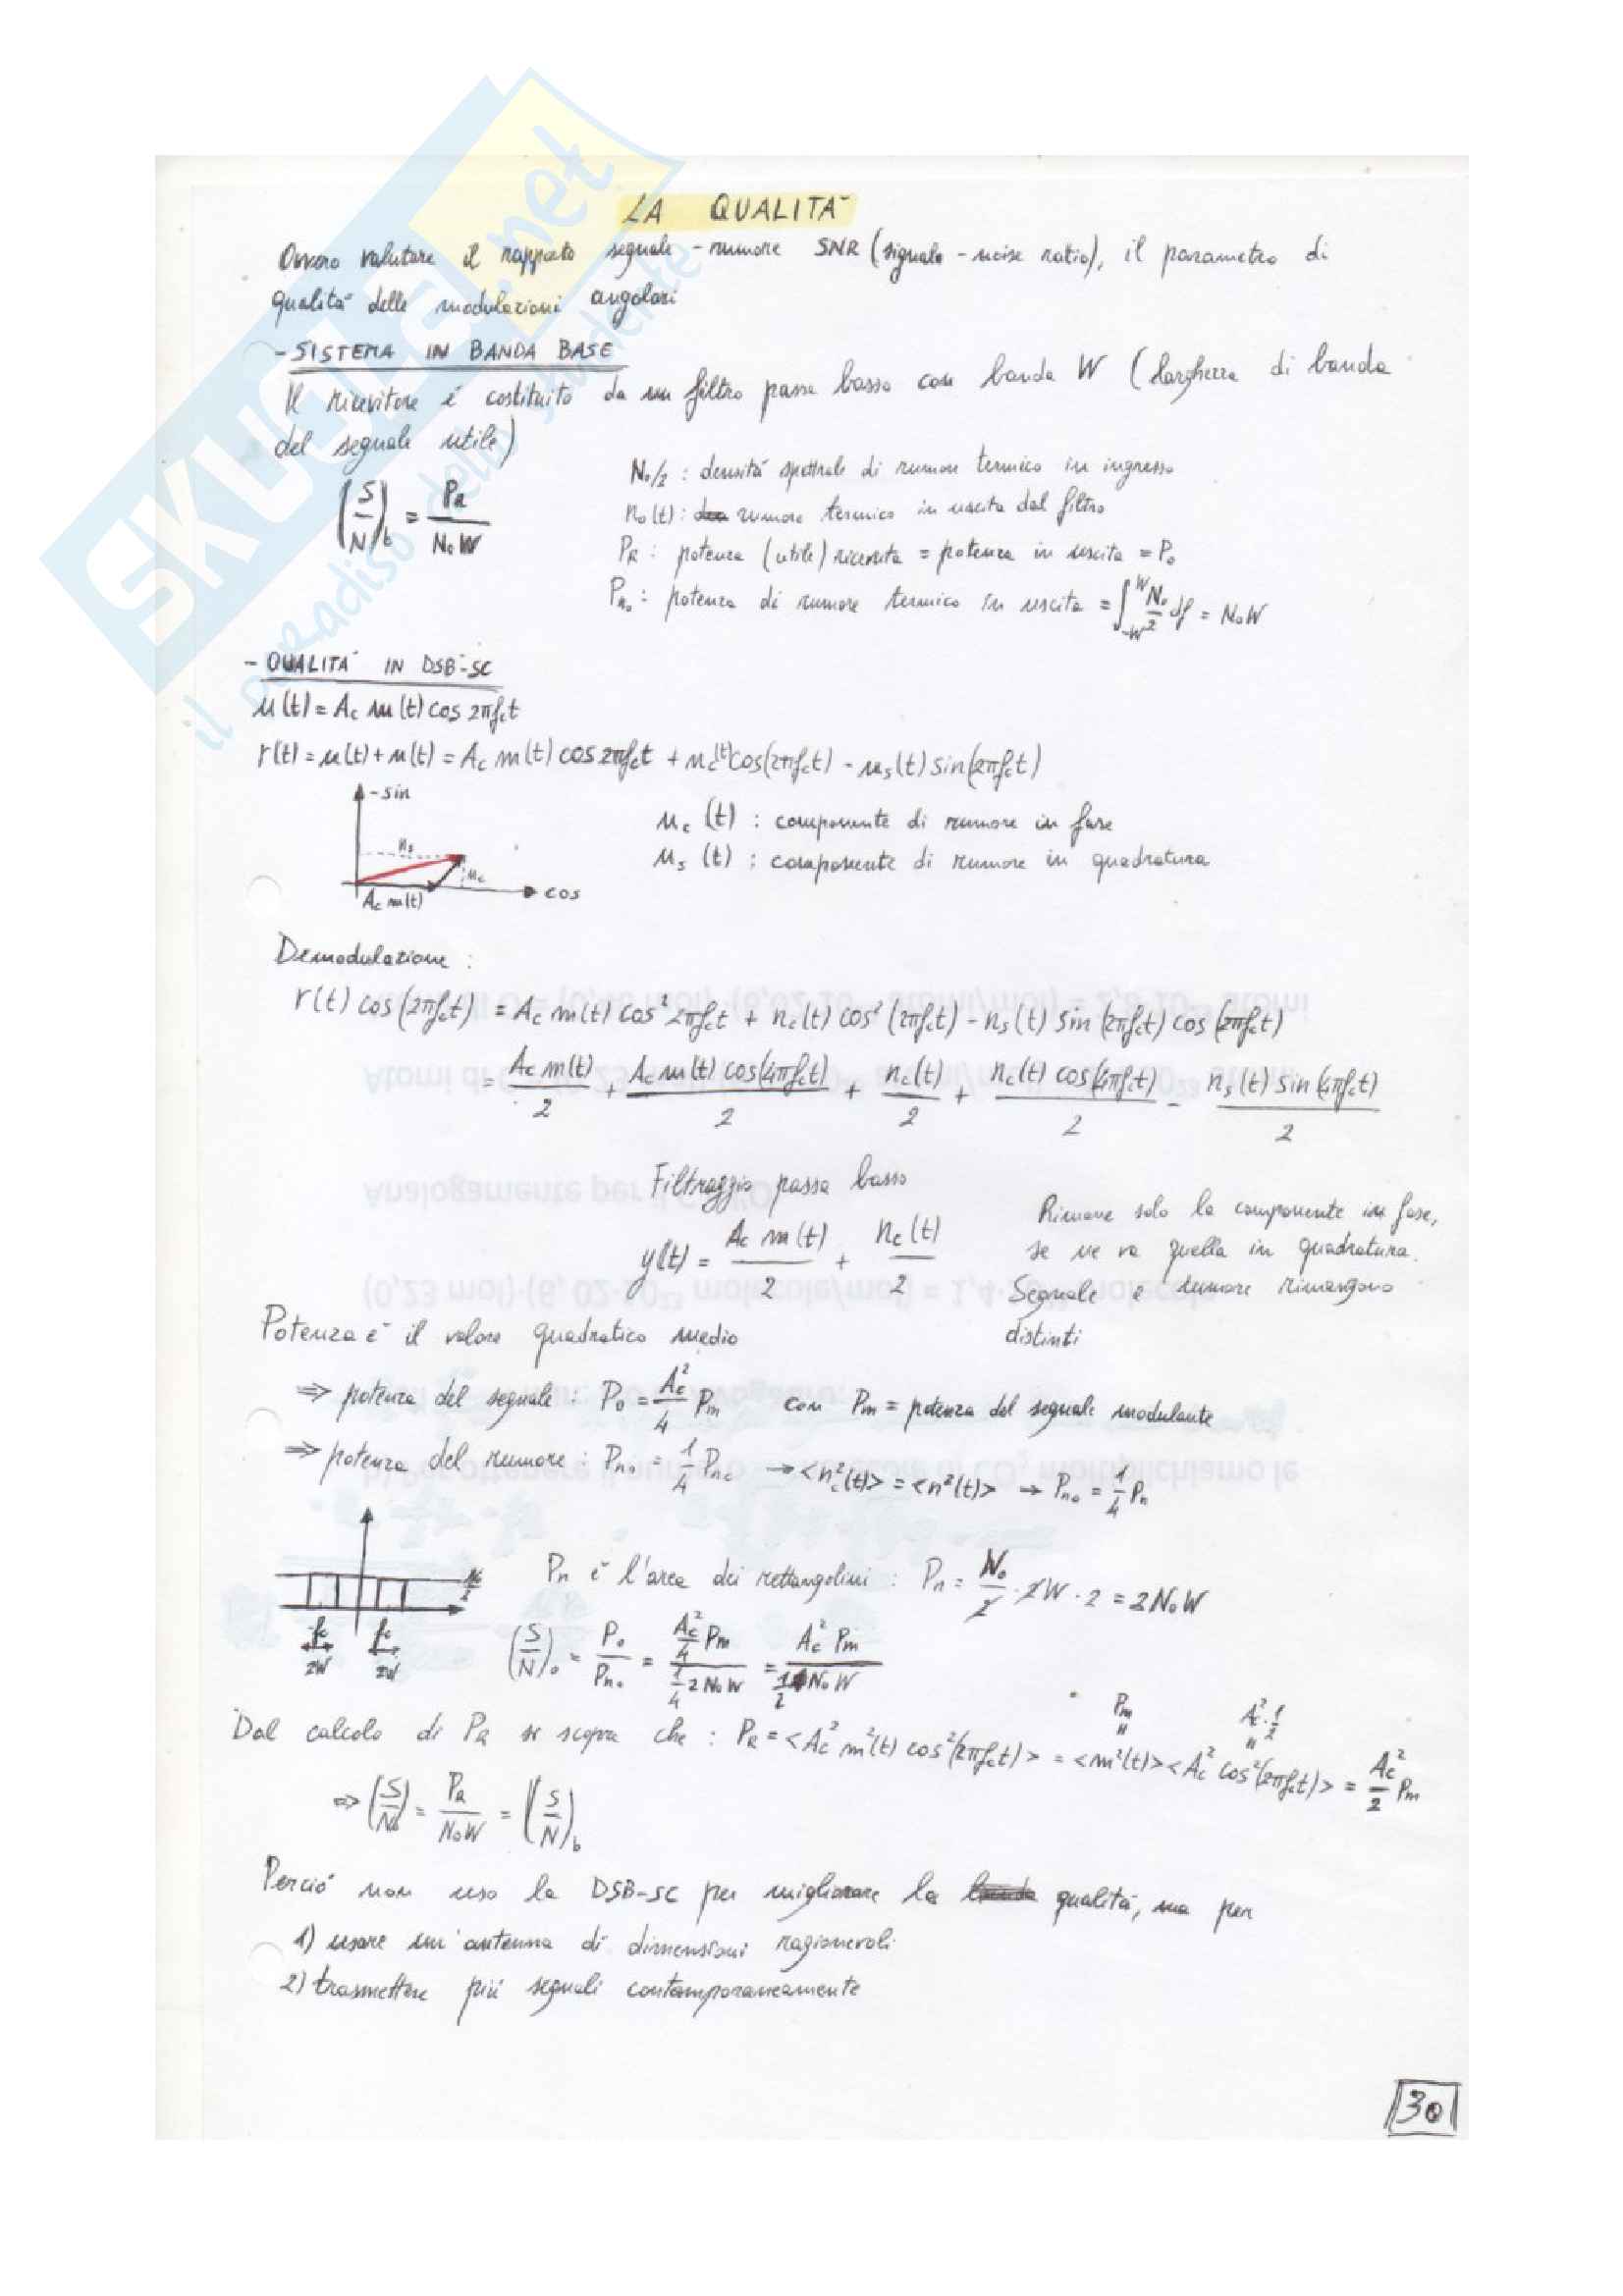 LA QUALITÀ
Ovvero valutare il rapporto segnale-rumore SNR (signale-noise ratio), il parametro di
qualità delle modulazioni angolari
- SISTEMA IN BANDA BASE
Il ricevitore è costituito da un filtro passa basso con banda W (larghezza di banda
del segnale utile)
(S/N)b = PR / N₀W
N₀/2 : densità spettrale di rumore termico in ingresso
n₀(t) : rumore termico in uscita dal filtro
PR : potenza (utile) ricevuta = potenza in uscita = P₀
Pn₀ : potenza di rumore termico in uscita = ∫_{-W}^{W} N₀/2 df = N₀W
- QUALITÀ IN DSB-SC
u(t) = Ac m(t) cos 2πfct
r(t) = u(t) + n(t) = Ac m(t) cos 2πfct + nc(t) cos(2πfct) - ns(t) sin(2πfct)
-sin
ns
nc
cos
Ac m(t)
nc(t) : componente di rumore in fase
ns(t) : componente di rumore in quadratura
Demodulazione :
r(t) cos(2πfct) = Ac m(t) cos² 2πfct + nc(t) cos²(2πfct) - ns(t) sin(2πfct) cos(2πfct)
= Ac m(t)/2 + Ac m(t) cos(4πfct)/2 + nc(t)/2 + nc(t) cos(4πfct)/2 - ns(t) sin(4πfct)/2
Filtraggio passa basso
y(t) = Ac m(t)/2 + nc(t)/2
Rimane solo la componente in fase,
se ne va quella in quadratura.
Segnale e rumore rimangono
distinti
Potenza è il valore quadratico medio
⇒ potenza del segnale : P₀ = Ac²/4 Pm con Pm = potenza del segnale modulante
⇒ potenza del rumore : Pn₀ = 1/4 Pnc → <nc²(t)> = <n²(t)> → Pn₀ = 1/4 Pn
N₀/2
-fc fc
2W 2W
Pn è l'area dei rettangolini : Pn = N₀/2 · 2W · 2 = 2N₀W
(S/N)₀ = P₀/Pn₀ = (Ac²/4 Pm)/(1/4 2N₀W) = Ac² Pm / 2N₀W
Dal calcolo di PR si scopre che : PR = <Ac² m²(t) cos²(2πfct)> = <m²(t)><Ac² cos²(2πfct)> = Ac²/2 Pm
Pm
Ac² · 1/2
⇒ (S/N)₀ = PR/N₀W = (S/N)b
Perciò non uso la DSB-SC per migliorare la qualità, ma per
1) usare un'antenna di dimensioni ragionevoli
2) trasmettere più segnali contemporaneamente
30
SKUOLA.net
il paradiso dello studente